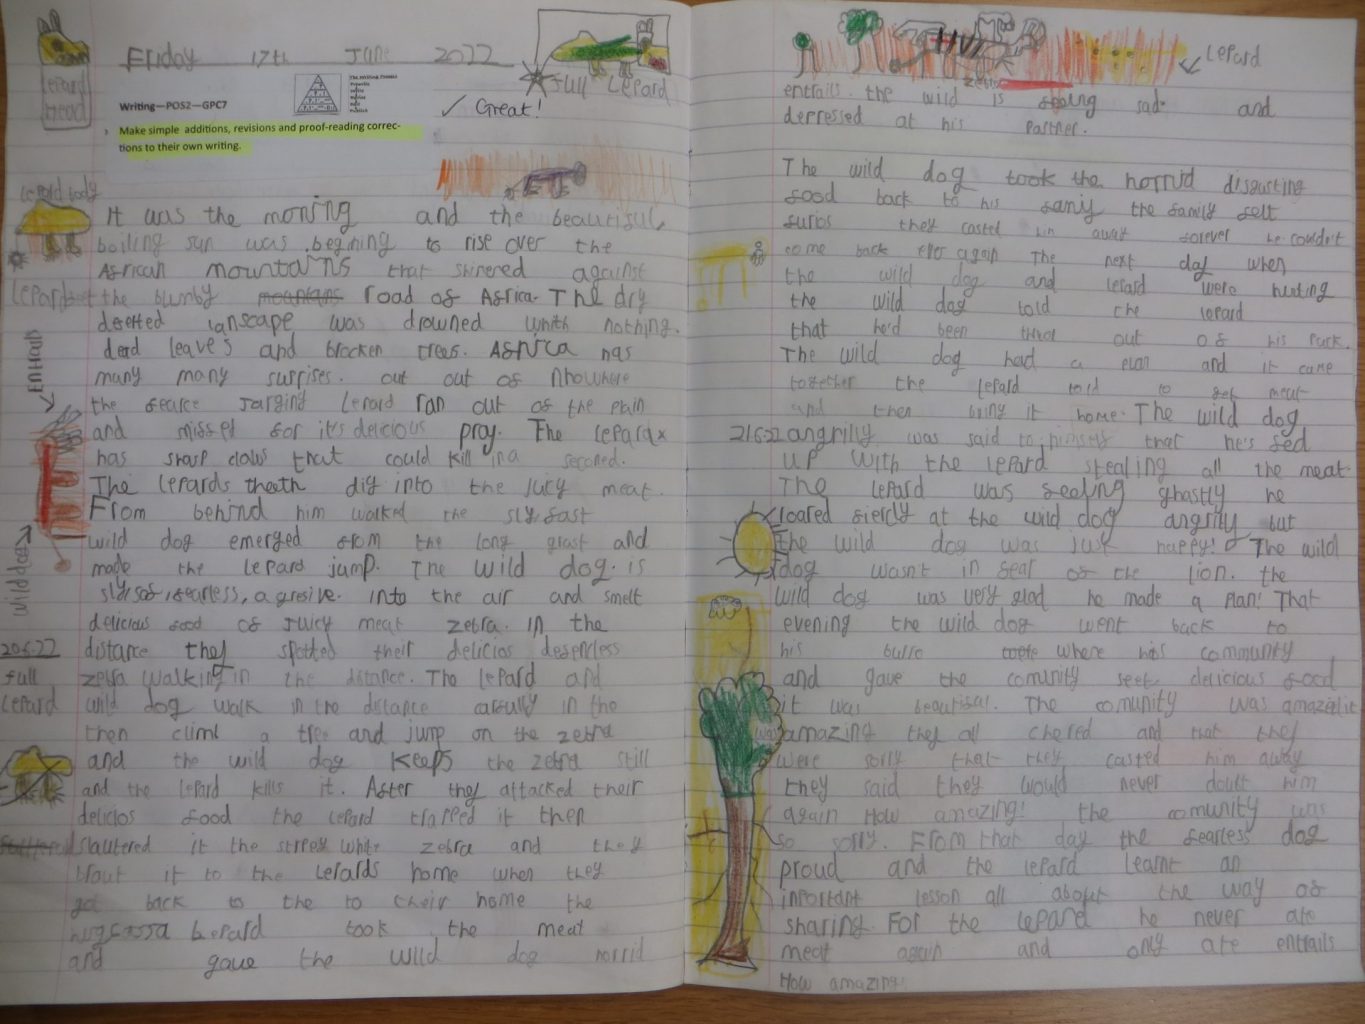 Friday 17th June 2022
Full Lepard
Lepard head
Writing—POS2—GPC7
The Writing Process
✓ Great!
Make simple additions, revisions and proof-reading correc-
tions to their own writing.
Lepard body
It was the moning and the beautiful,
boiling sun was begining to rise over the
African mountains that shinered against
Lepard the bumby mountans road of Africa. The dry
deserted lanscape was drowned whith nothing.
dead leaves and brocken trees. Africa has
Entrails
many many surprises. out out of nhowhere
the fearce Lepard ran out of the plain
and missed for it's delicious pray. The Lepard
has sharp claws that could kill in a seconed.
The Lepards theeth dig into the juicy meat.
From behind him walked the sly fast
wild dog
wild dog emerged from the long grast and
made the Lepard jump. The wild dog. is
fearless, agresive. into the air and smelt
delicious food of juicy meat zebra. In the
20.6.22 distance they spotted their delicios
full zebra walking in the distance. The Lepard and
Lepard wild dog walk in the distance carfully in the
then climl a tree and jump on the zebra
and the wild dog keeps the zebra still
and the Lepard kills it. After they attacked their
delicios food the Lepard trapped it then
slautered it the stripey white zebra and they
brout it to the Lepards home when they
got back to the to their home the
Lepard took the meat
and gave the wild dog horrid
Lepard
zebra
entrails. the wild is sad and
derressed at his Partner.
The wild dog took the horrid disgusting
food back to his famiy the family felt
furios they casted him away forever he couldn't
come back ever again The next day when
the wild dog and Lepard were hunting
the wild dog told the Lepard
that he'd been out of his Pack.
The wild dog had a plan and it came
together the Lepard told to get meat
and then bring it home. The wild dog
21.6.22 angrily was said to himself that he's fed
up with the Lepard stealing all the meat.
The Lepard was feeling ghastly he
roared fiercly at the wild dog angrily but
The wild dog was just happy! The wild
dog wasnt in fear of the lion. the
wild dog was very glad he made a plan! That
evening the wild dog went back to
his where his community
and gave the comunity delicious food
it was beautifal. The comunity was
was amazing they all chered and that they
were sorry that they casted him away
they said they would never doubt him
again How amazing! the comunity was
so sorry. From that day the fearless dog
proud and the Lepard learnt an
inportant lesson all about the way of
sharing. For the Lepard he never ate
meat again and only ate entrails
How amazing!